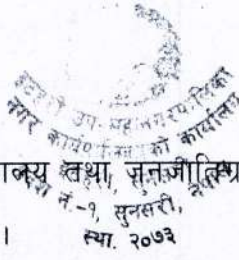 इटहरी उप-महानगरपालिका
नगर कार्यपालिकाको कार्यालय
लय तथा, जनजाति
नं.-१, सुनसरी,
।
स्था. २०७३